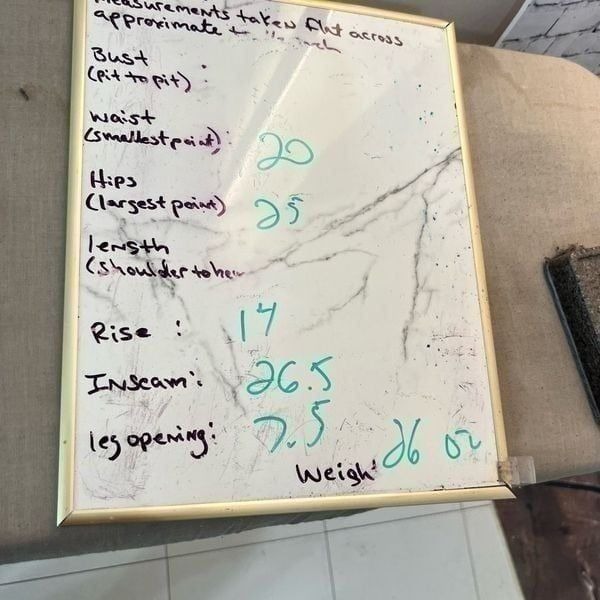 Measurements taken flat across
approximate
Bust
(pit to pit) :
Waist
(smallest point): 20
Hips
(largest point) 25
length
(shoulder to hem
Rise : 14
Inseam: 26.5
leg opening: 7.5
Weigh: 26 oz